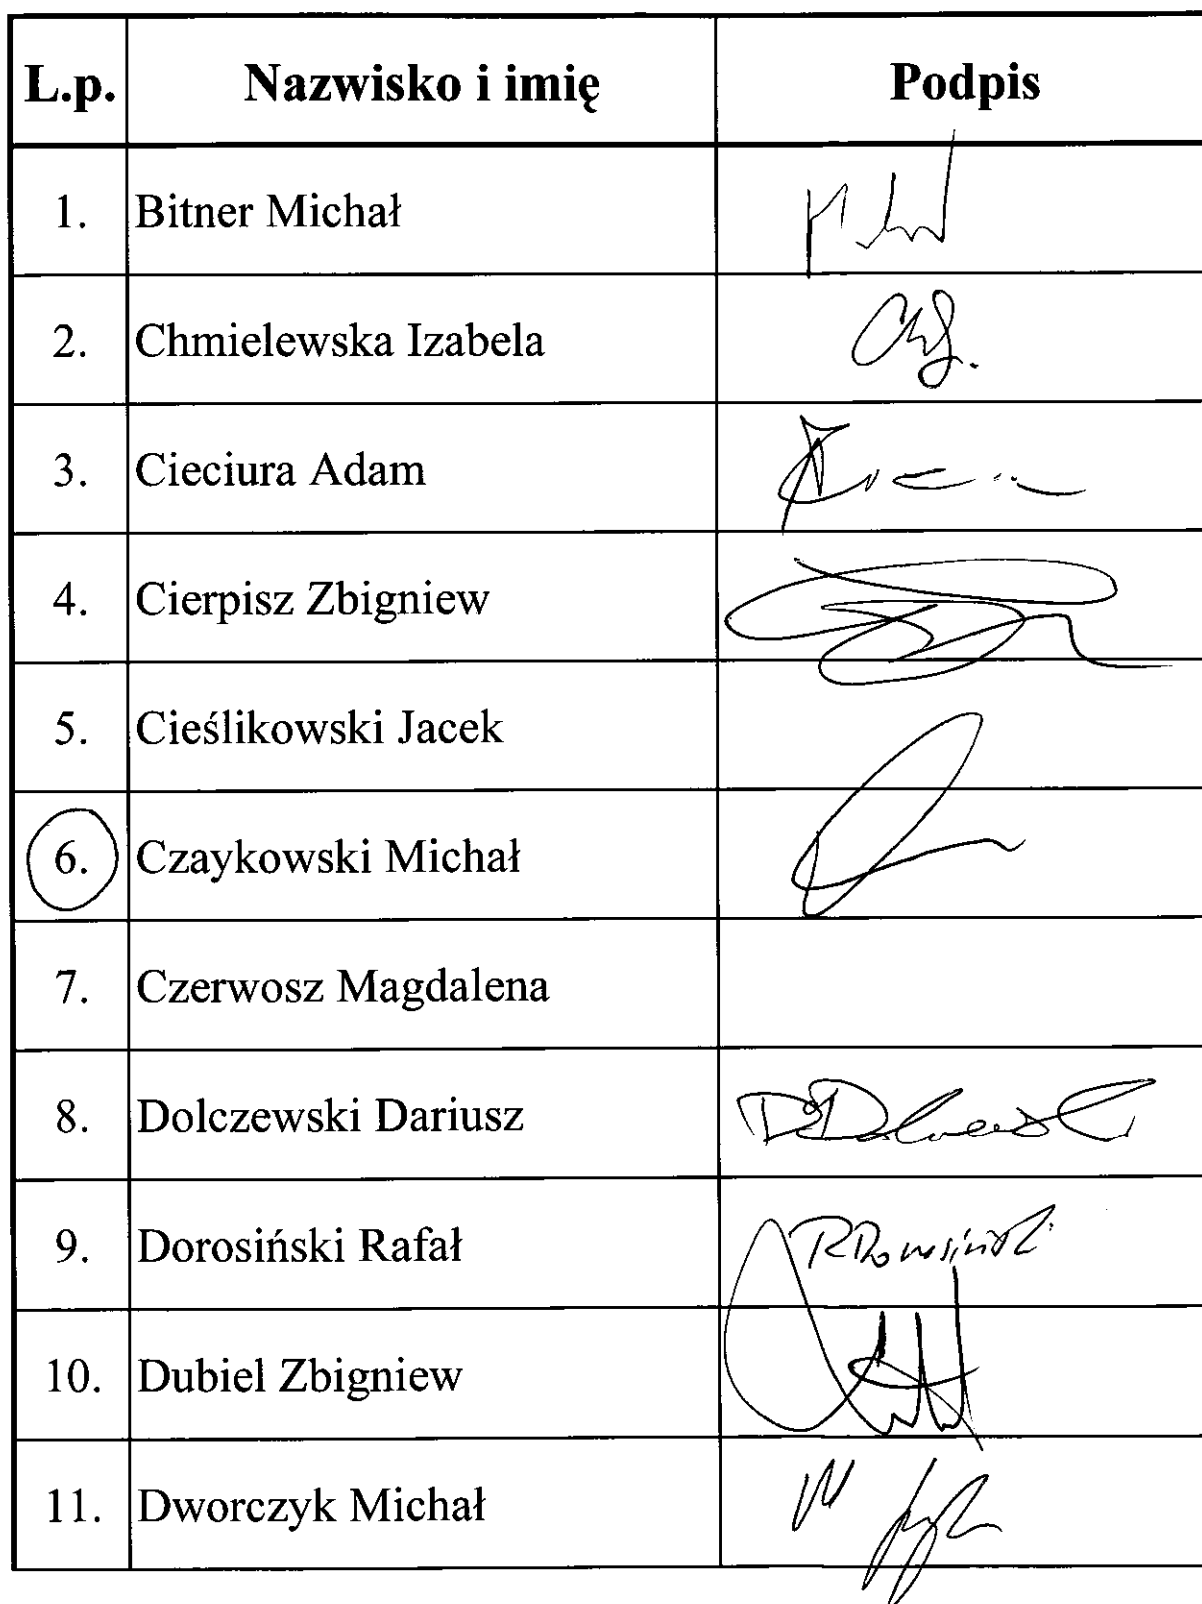 L.p. Nazwisko i imię Podpis
1. Bitner Michał
2. Chmielewska Izabela
3. Cieciura Adam
4. Cierpisz Zbigniew
5. Cieślikowski Jacek
6. Czaykowski Michał
7. Czerwosz Magdalena
8. Dolczewski Dariusz
9. Dorosiński Rafał
10. Dubiel Zbigniew
11. Dworczyk Michał